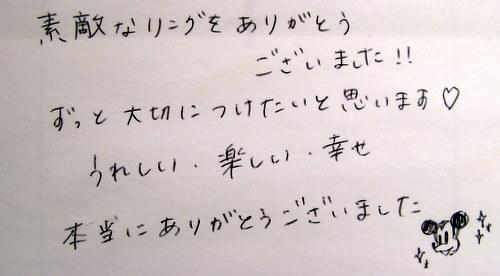 素敵なリングをありがとう
ございました!!
ずっと大切につけたいと思います♡
うれしい・楽しい・幸せ
本当にありがとうございました